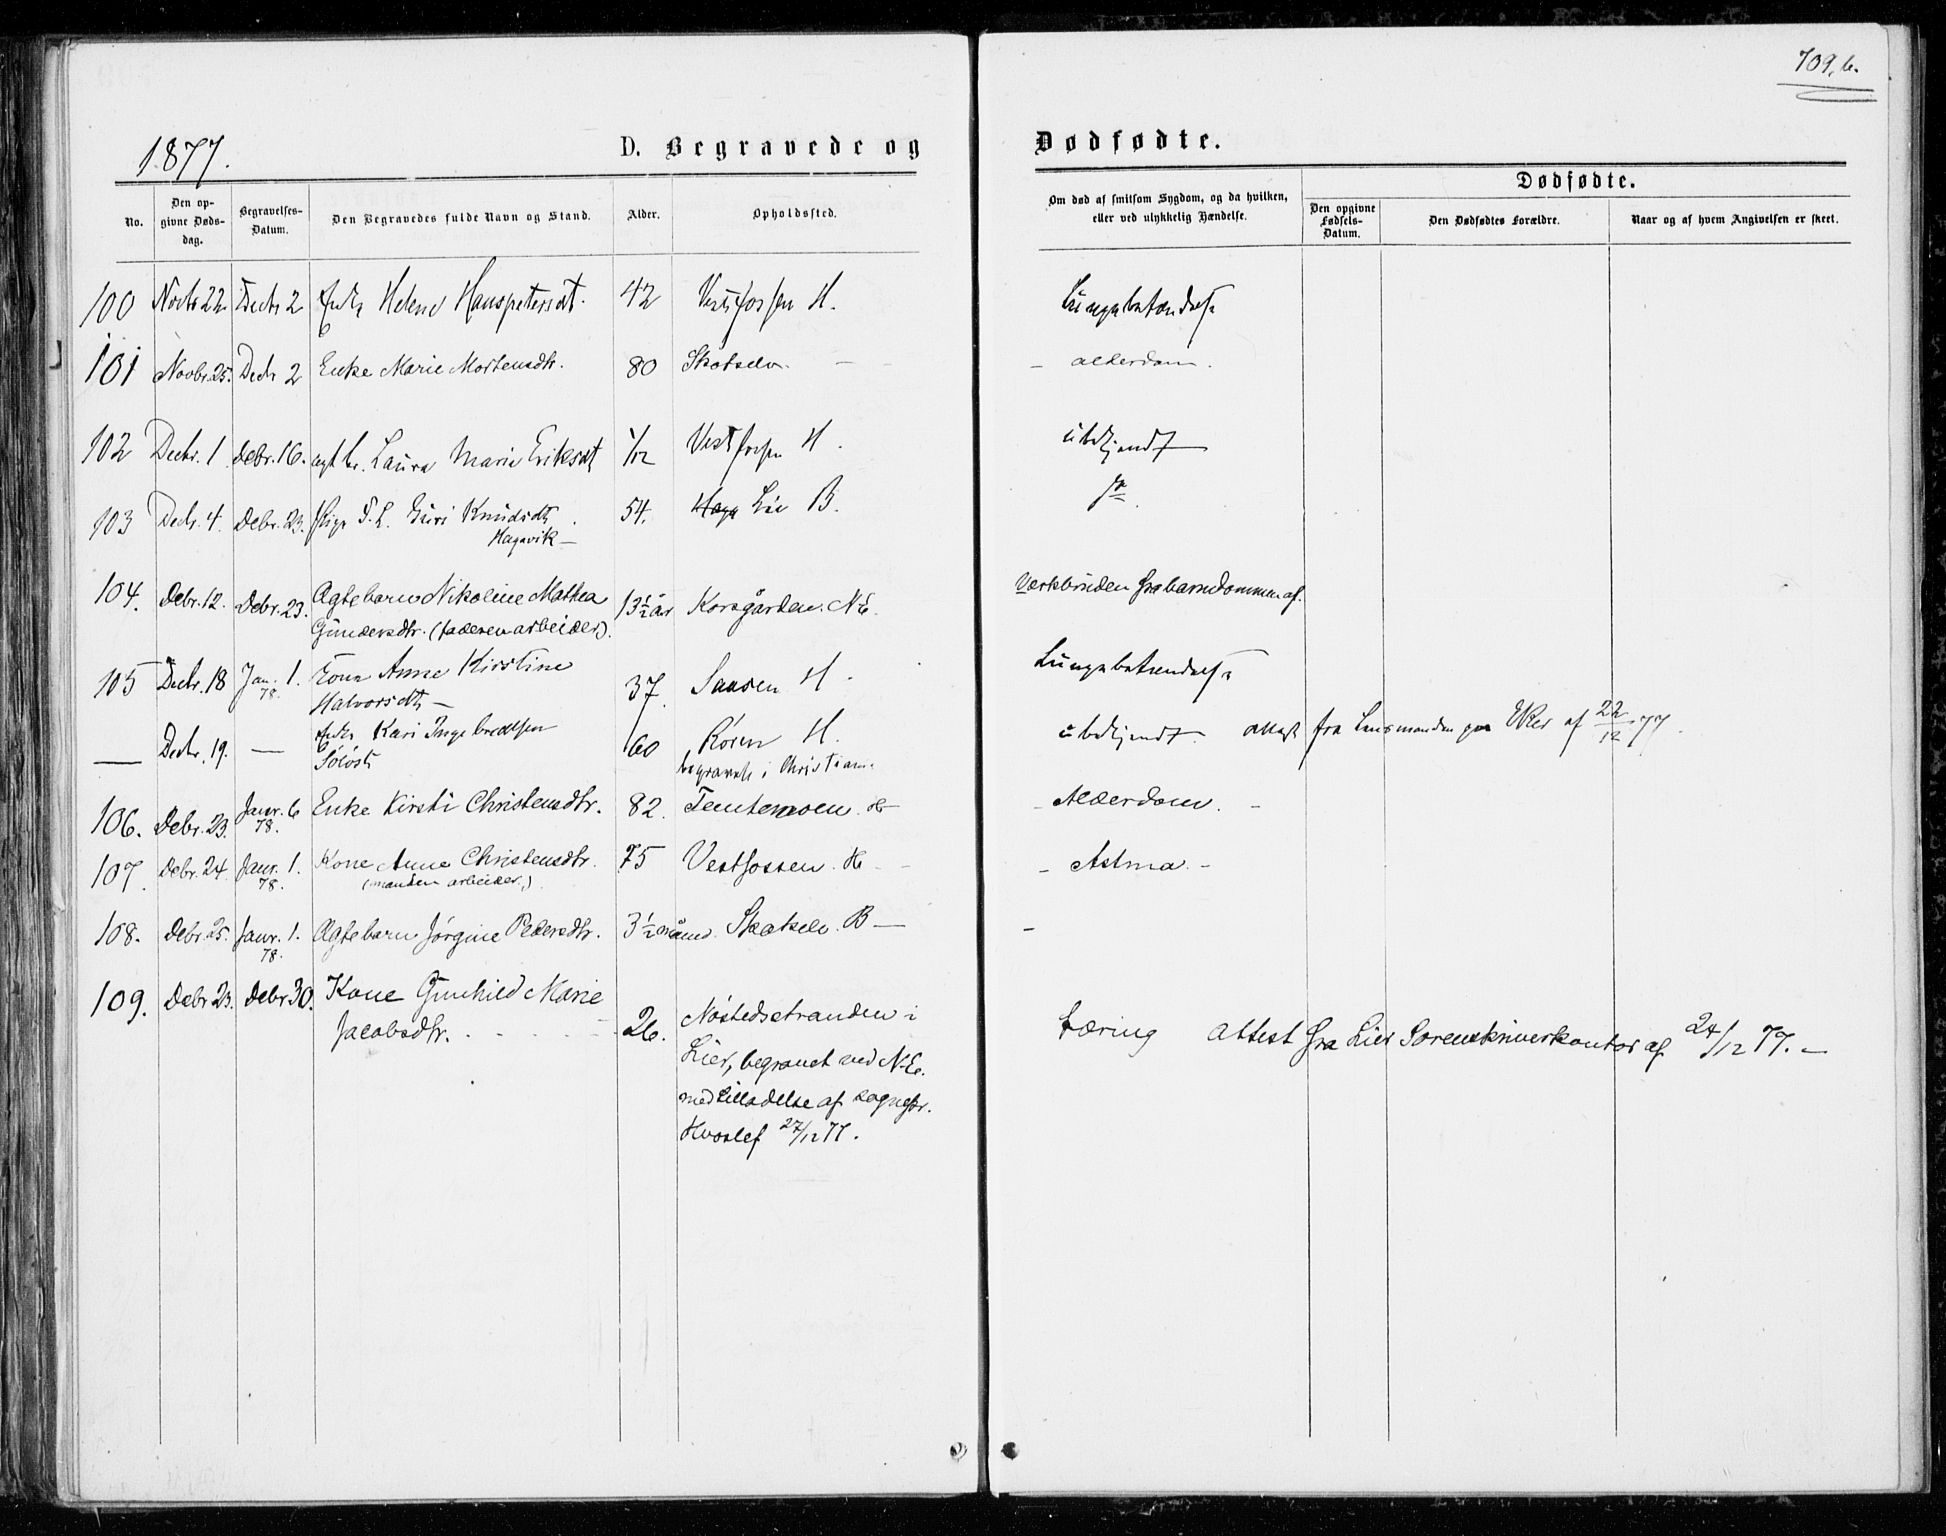 709,b.
1877. D. Begravede og Dødfødte.
No. Den opgivne Dødsdag. Begravelses-Datum. Den Begravedes fulde Navn og Stand. Alder. Opholdssted. Om død af smitsom Sygdom, og da hvilken, eller ved ulykkelig Hændelse. Dødfødte.
Den opgivne Fødsels-Datum. Den Dødfødtes Forældre. Naar og af hvem Angivelsen er skeet.
100 Novbr 22 Decbr 2 Enke Helene Hanspetersdt. 42 Vestfossen H. Lungebetændelse
101 Novbr. 25. Decbr 2 Enke Marie Mortensdtr. 80 Skotselv. — - alderdom.
102 Decbr. 1 Debr. 16. ægt b. Laura Marie Eriksdt 1/12 Vestfossen H. ubekjendt
103 Decbr. 4. Debr. 23. Pige F. L. Guri Knudsdt. 54. Lie B.
Hagavik —
104. Debr. 12. Debr. 23. Ægtebarn Nikoline Mathea 13½ år Korsgården. NE. Værkbruden fra barndommen af.
Gundersdtr. (faderen arbeider).
105 Decbr. 18 Jan. 1. Kone Anne Kirstine 37. Saasen H. Lungebetændelse
78.
Halvorsdt —
— Decbr. 19. — Enke Kari Ingebredtsen 60 Røren H. ubekjendt. attest fra Lensmanden paa Eker af 22/12 77.
begravet i Christian.
106. Debr. 23. Janr. 6 Enke Kirsti Christensdtr. 82. Temtemoen H - Alderdom. -
78.
107. Debr. 24. Janr. 1. Kone Anne Christensdtr. 75 Vestfossen. H - - Astma. -
78. (manden arbeider.)
108. Debr. 25. Janr. 1. Ægtebarn Jørgine Pedersdtr. 3½ måned. Skotselv. B — -
78.
109. Debr. 23. Debr 30. Kone Gunhild Marie
Jacobsdtr. 26. Nøstedstranden i Tæring Attest fra Lier Sorenskriverkontor af 24/12 77. —
Lier, begravet ved N-E.
med tilladelse af sognepr.
Hvoslef 27/12 77.